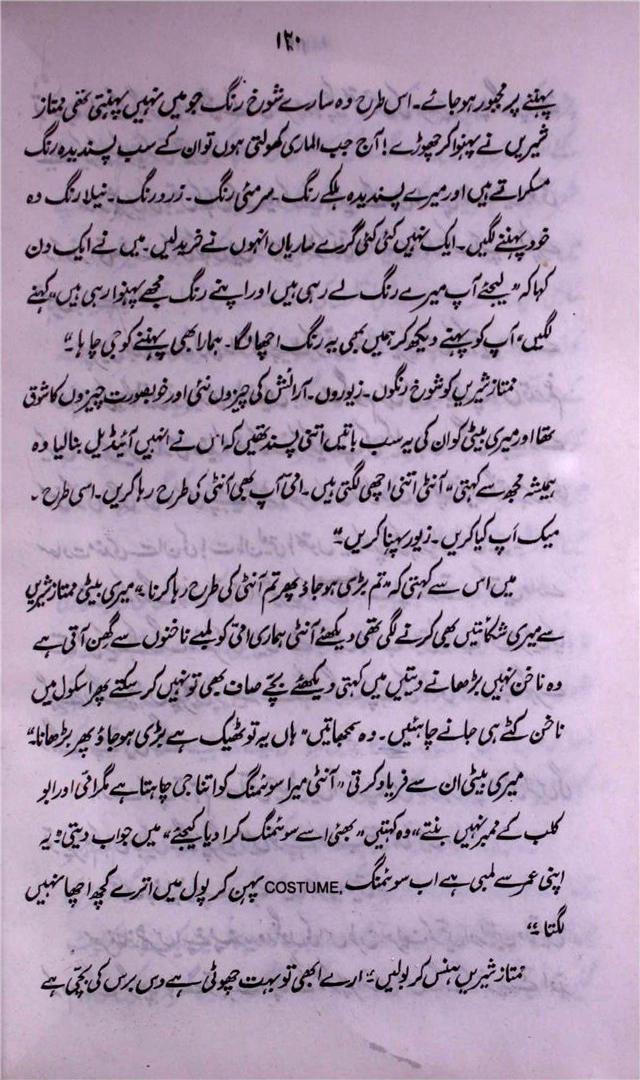 ۱۲۰
پہننے پر مجبور ہو جائے۔ اس طرح وہ سارے شوخ رنگ جو میں نہیں پہنتی تھی ممتاز
شیریں نے پہنوا کر چھوڑے! آج جب الماری کھولتی ہوں تو ان کے سب پسندیدہ رنگ
مسکراتے ہیں اور میرے پسندیدہ ہلکے رنگ۔ سرمئی رنگ۔ زرد رنگ۔ نیلا رنگ وہ
خود پہننے لگیں۔ ایک نہیں کئی کئی گرے ساریاں انہوں نے خرید لیں۔ میں نے ایک دن
کہا کہ "لیجئے آپ میرے رنگ لے رہی ہیں اور اپنے رنگ مجھے پہنوا رہی ہیں" کہنے
لگیں "آپ کو پہنے دیکھ کر ہمیں بھی یہ رنگ اچھا لگا۔ ہمارا بھی پہننے کو جی چاہا"۔
ممتاز شیریں کو شوخ رنگوں۔ زیوروں۔ آرائش کی چیزوں نئی اور خوبصورت چیزوں کا شوق
تھا اور میری بیٹی کو ان کی یہ سب باتیں اتنی پسند تھیں کہ اس نے انہیں آئیڈیل بنا لیا وہ
ہمیشہ مجھ سے کہتی "آنٹی اتنی اچھی لگتی ہیں۔ امی آپ بھی آنٹی کی طرح رہا کریں۔ اسی طرح۔
میک اپ کیا کریں۔ زیور پہنا کریں"۔
میں اس سے کہتی کہ "تم بڑی ہو جاؤ پھر تم آنٹی کی طرح رہا کرنا"۔ میری بیٹی ممتاز شیریں
سے میری شکائتیں بھی کرنے لگی تھی دیکھئے آنٹی ہماری امی کو لمبے ناخنوں سے گھن آتی ہے
وہ ناخن نہیں بڑھانے دیتیں میں کہتی دیکھئے بچے صاف بھی تو نہیں کر سکتے پھر اسکول میں
ناخن کٹے ہی جانے چاہئیں۔ وہ سمجھاتیں "ہاں یہ تو ٹھیک ہے بڑی ہو جاؤ پھر بڑھانا"۔
میری بیٹی ان سے فریاد کرتی "آنٹی میرا سوئمنگ کو اتنا جی چاہتا ہے مگر امی اور ابو
کلب کے ممبر نہیں بنتے" وہ کہتیں "بھئی اسے سوئمنگ کرا دیا کیجئے" میں جواب دیتی "یہ
اپنی عمر سے لمبی ہے اب سوئمنگ COSTUME. پہن کر پول میں اترے کچھ اچھا نہیں
لگتا"۔
ممتاز شیریں ہنس کر بولیں "ارے ابھی تو بہت چھوٹی ہے دس برس کی بچی ہے